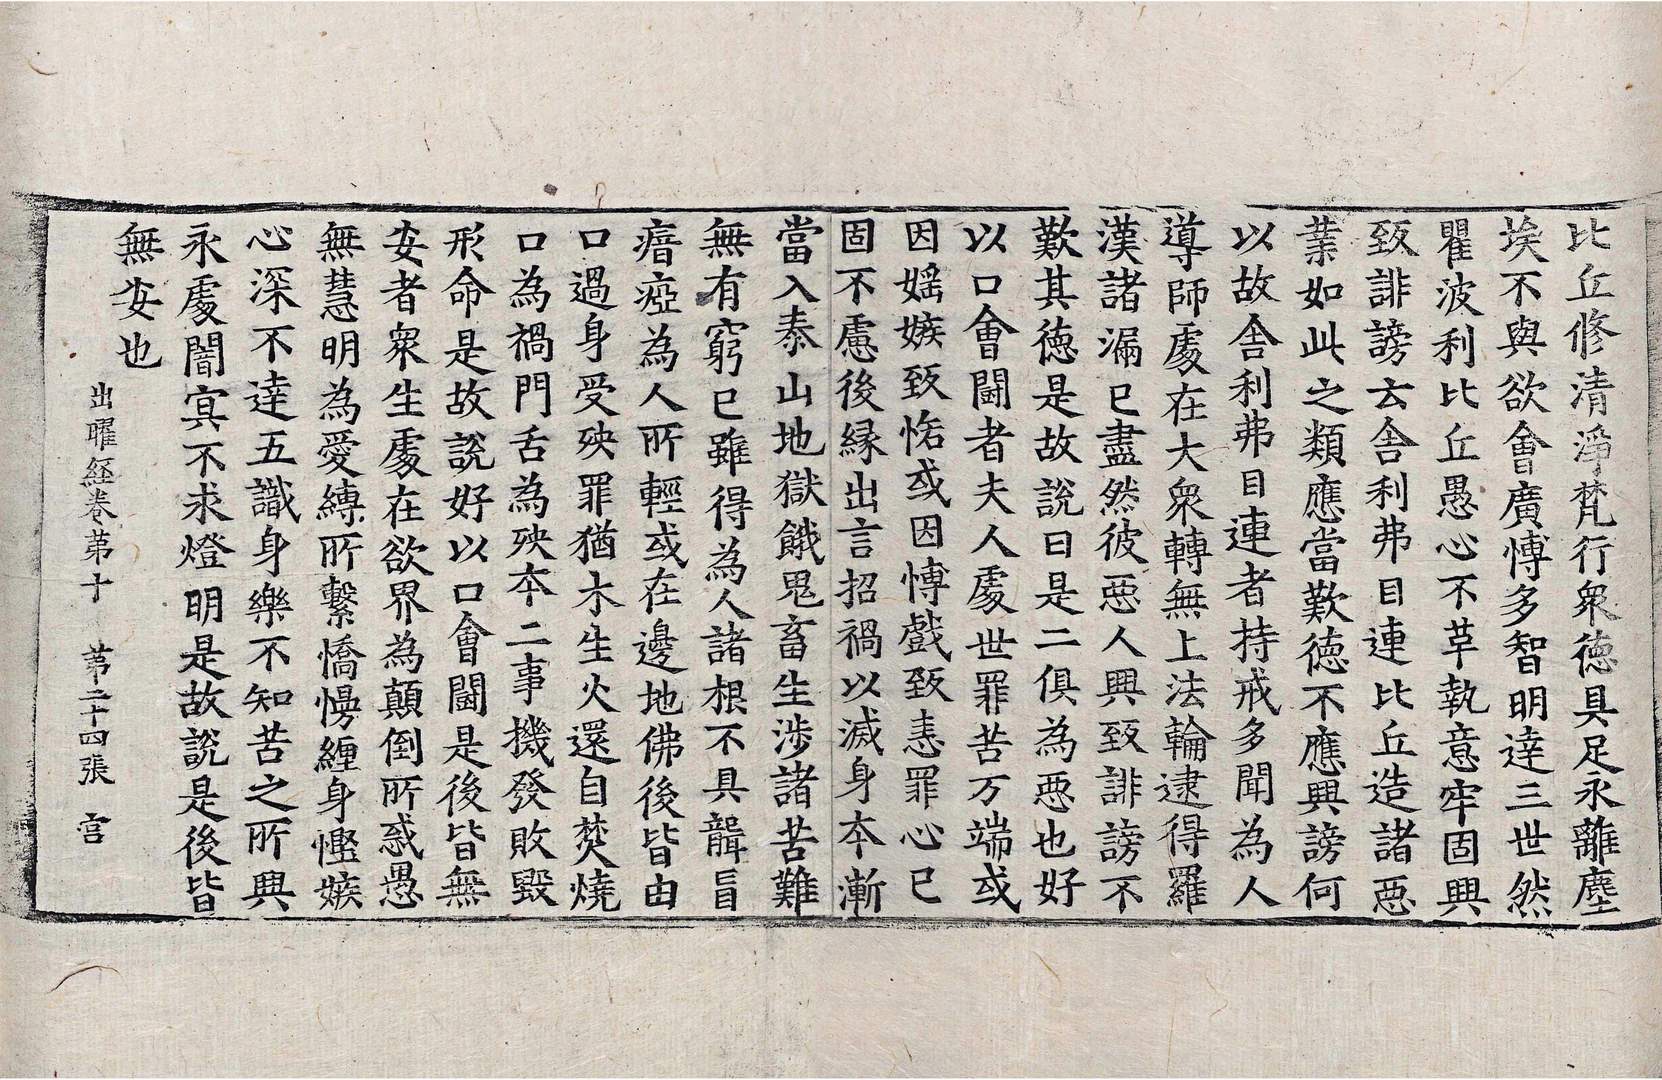 比丘修清淨梵行衆徳具足永離塵
埃不與欲會廣愽多智明達三世然
瞿波利比丘愚心不革執意牢固興
致誹謗云舎利弗目連比丘造諸惡
業如此之類應當歎徳不應興謗何
以故舎利弗目連者持戒多聞為人
導師處在大衆轉無上法輪逮得羅
漢諸漏已盡然彼惡人興致誹謗不
歎其徳是故說曰是二俱為惡也好
以口會鬪者夫人處世罪苦万端或
因婬嫉致恡或因愽戲致恚罪心已
固不慮後縁出言招禍以滅身本漸
當入泰山地獄餓鬼畜生涉諸苦難
無有窮已雖得為人諸根不具聾盲
瘖瘂為人所輕或在邊地佛後皆由
口過身受殃罪猶木生火還自焚燒
口為禍門舌為殃本二事機發敗毀
形命是故說好以口會鬪是後皆無
安者衆生處在欲界為顛倒所惑愚
無慧明為愛縛所繫憍慢纏身慳嫉
心深不達五識身樂不知苦之所興
永處闇冥不求燈明是故說是後皆
無安也
出曜經卷第十 第二十四張 宫